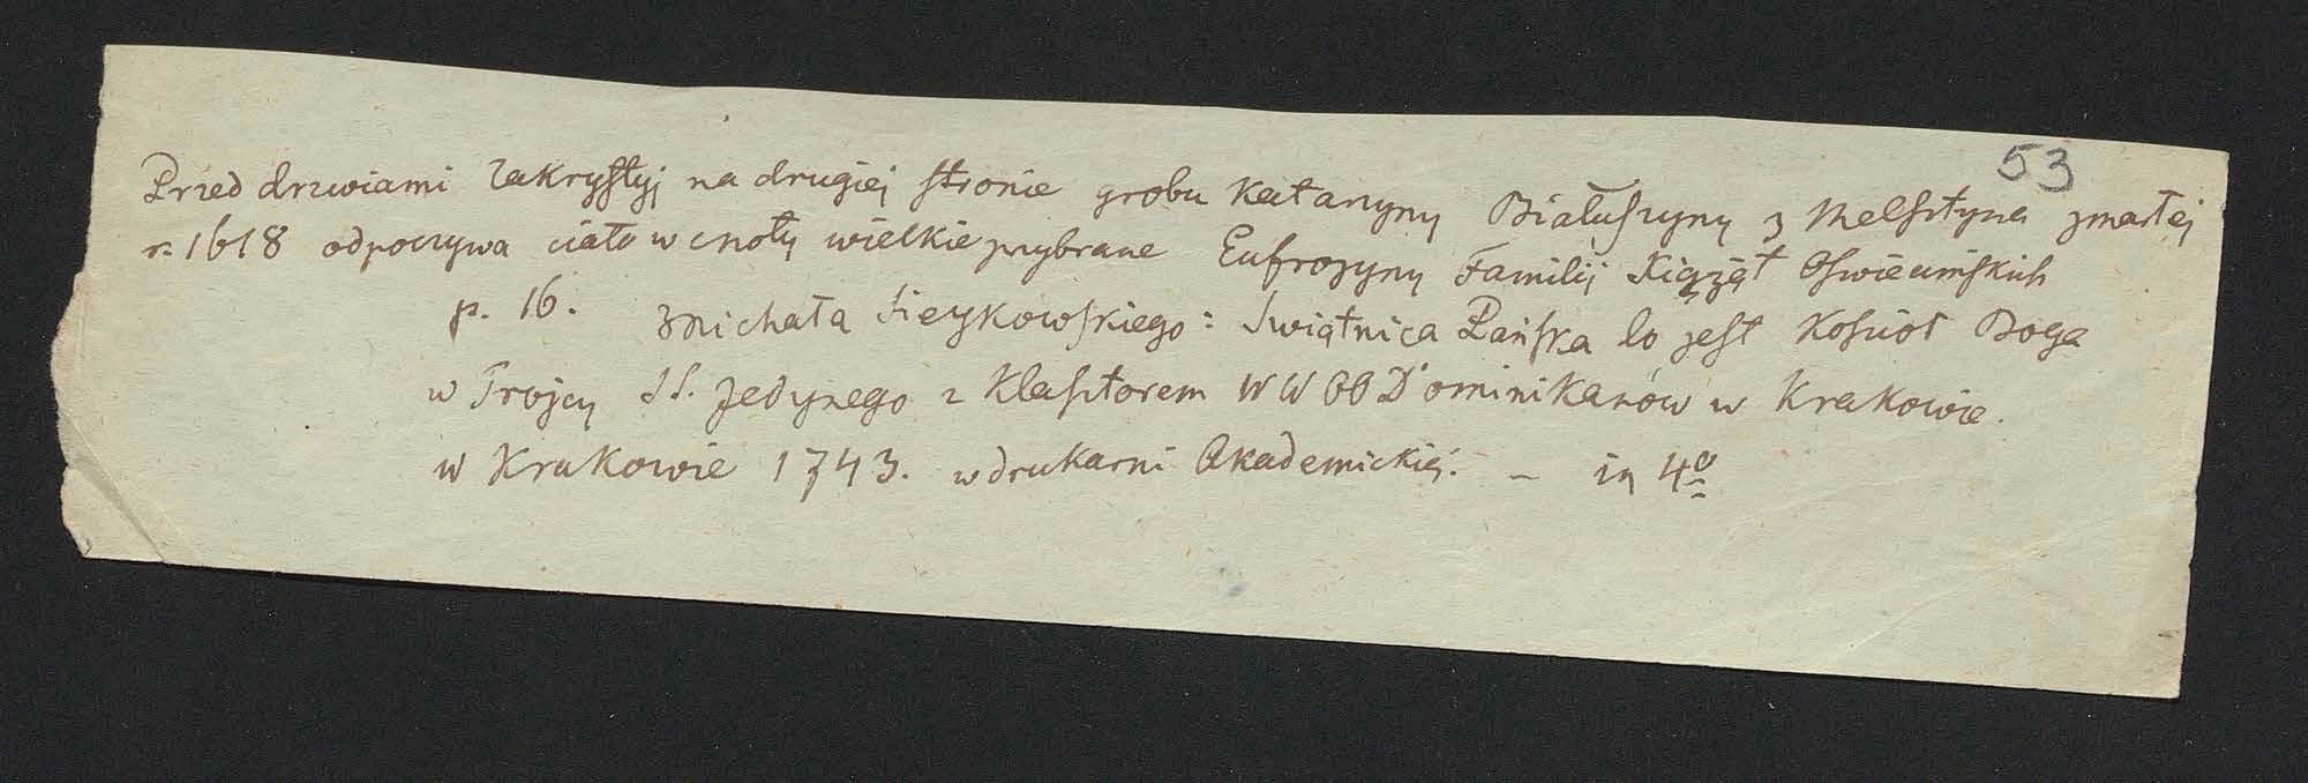 53
Przed drzwiami Zakrystyj na drugiej stronie grobu Katarzyny Białuszyny z Melsztyna zmarłej
r. 1618 odpoczywa ciało w cnoty wielkie przybrane Eufrozyny Familij Xiążąt Oswiecimskich
p. 16. Michała Sieykowskiego: Swiątnica Pańska to jest Kościoł Boga
w Trojcy SS. Jedynego z Klasztorem WW OO Dominikanów w Krakowie.
w Krakowie 1743. w drukarni Akademickiej. – in 4o